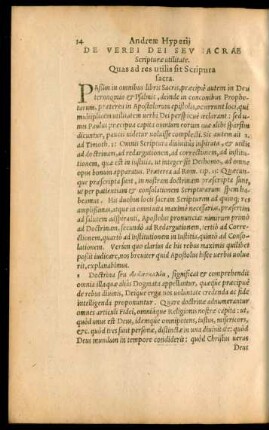 34 Andreæ Hyperij
DE VERBI DEI SEV SACRAE
Scripturæ utilitate.
Quas ad res utilis sit Scriptura
sacra.
PAssim in omnibus libris Sacris, præcipuè autem in Deu
teronomio & Psalmis, deinde in concionibus Prophe-
tarum, præterea in Apostolorum epistolis, occurrunt loci, qui
multiplicem utilitatem verbi Dei perspicuè declarant: sed u-
nus Paulus præcipua capita omnium rerum quæ alibi sparsim
dicuntur, paucis uidetur voluisse complecti. Sic autem ait 2.
ad Timoth. 3: Omnis Scriptura diuinitùs inspirata, & utilis
ad doctrinam, ad redargutionem, ad correctionem, ad institutio-
nem, quæ est in iustitia, ut integer sit Dei homo, ad omne
opus bonum apparatus. Præterea ad Rom. 15. Quæcun-
que præscripta sunt, in nostram doctrinam præscripta sunt,
ut per patientiam & consolationem Scripturarum spem ha-
beamus. His duobus locis sacram Scripturam ad quinque res
amplissimas, atque in omni uita maximè necessarias, præsertim
ad salutem adipiscendi, Apostolus pronunciat: nimirum primò
ad Doctrinam, secundò ad Redargutionem, tertiò ad Corre-
ctionem, quartò ad Institutionem in iustitia, quintò ad Conso-
lationem. Verùm quo clarius de his rebus maximis quilibet
possit iudicare, nos breuiter quid Apostolus hisce verbis uolue
rit, explanabimus.
Doctrina seu διδασκαλία, significat & comprehendit
omnis illa quæ aliàs Dogmata appellantur, quæque præcipuè
de rebus diuinis, Deique erga nos voluntate credenda ac fide
intelligenda proponuntur. Quare doctrinæ adnumerantur
omnes articuli Fidei, omniaque religionis nostræ capita: ut,
quòd unus est Deus, idemque omnipotens, iustus, misericors,
&c. quòd tres sunt personæ, distinctæ in una diuinitate: quòd
Deus mundum in tempore condiderit: quòd Christus uerus
Deus